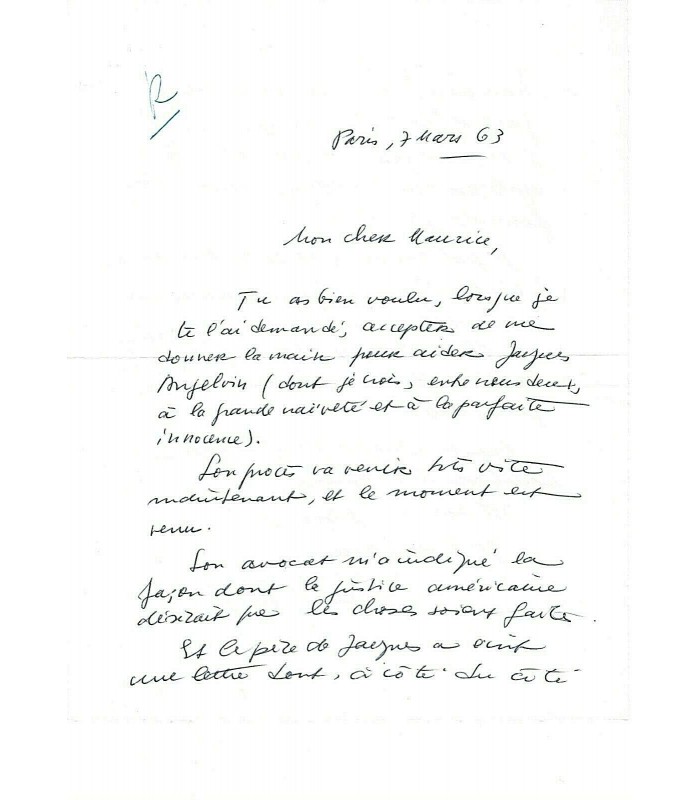 R
Paris, 7 Mars 63
Mon cher Maurice,
Tu as bien voulu, lorsque je
te l'ai demandé, accepter de me
donner la main pour aider Jacques
Angelvin (dont je crois, entre nous deux,
à la grande naïveté et à la parfaite
innocence).
Son procès va venir très vite
maintenant, et le moment est
venu.
Son avocat m'a indiqué la
façon dont la justice américaine
désirait que les choses soient faites.
Et le père de Jacques a écrit
une lettre dont, à côté du côté